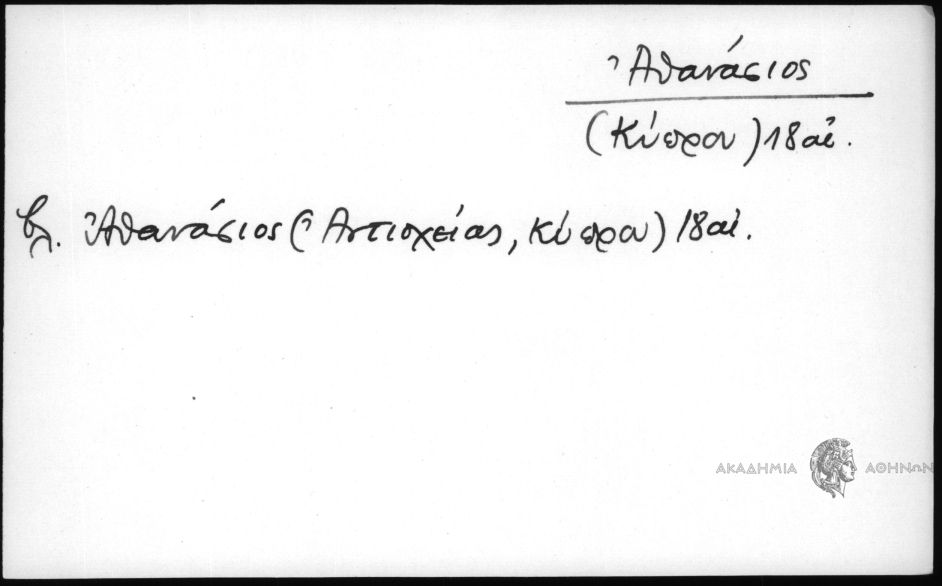 Ἀθανάσιος
(Κύπρου) 18 αἰ.
βλ. Ἀθανάσιος (Ἀντιοχείας, Κύπρου) 18 αἰ.
ΑΚΑΔΗΜΙΑ ΑΘΗΝΩΝ